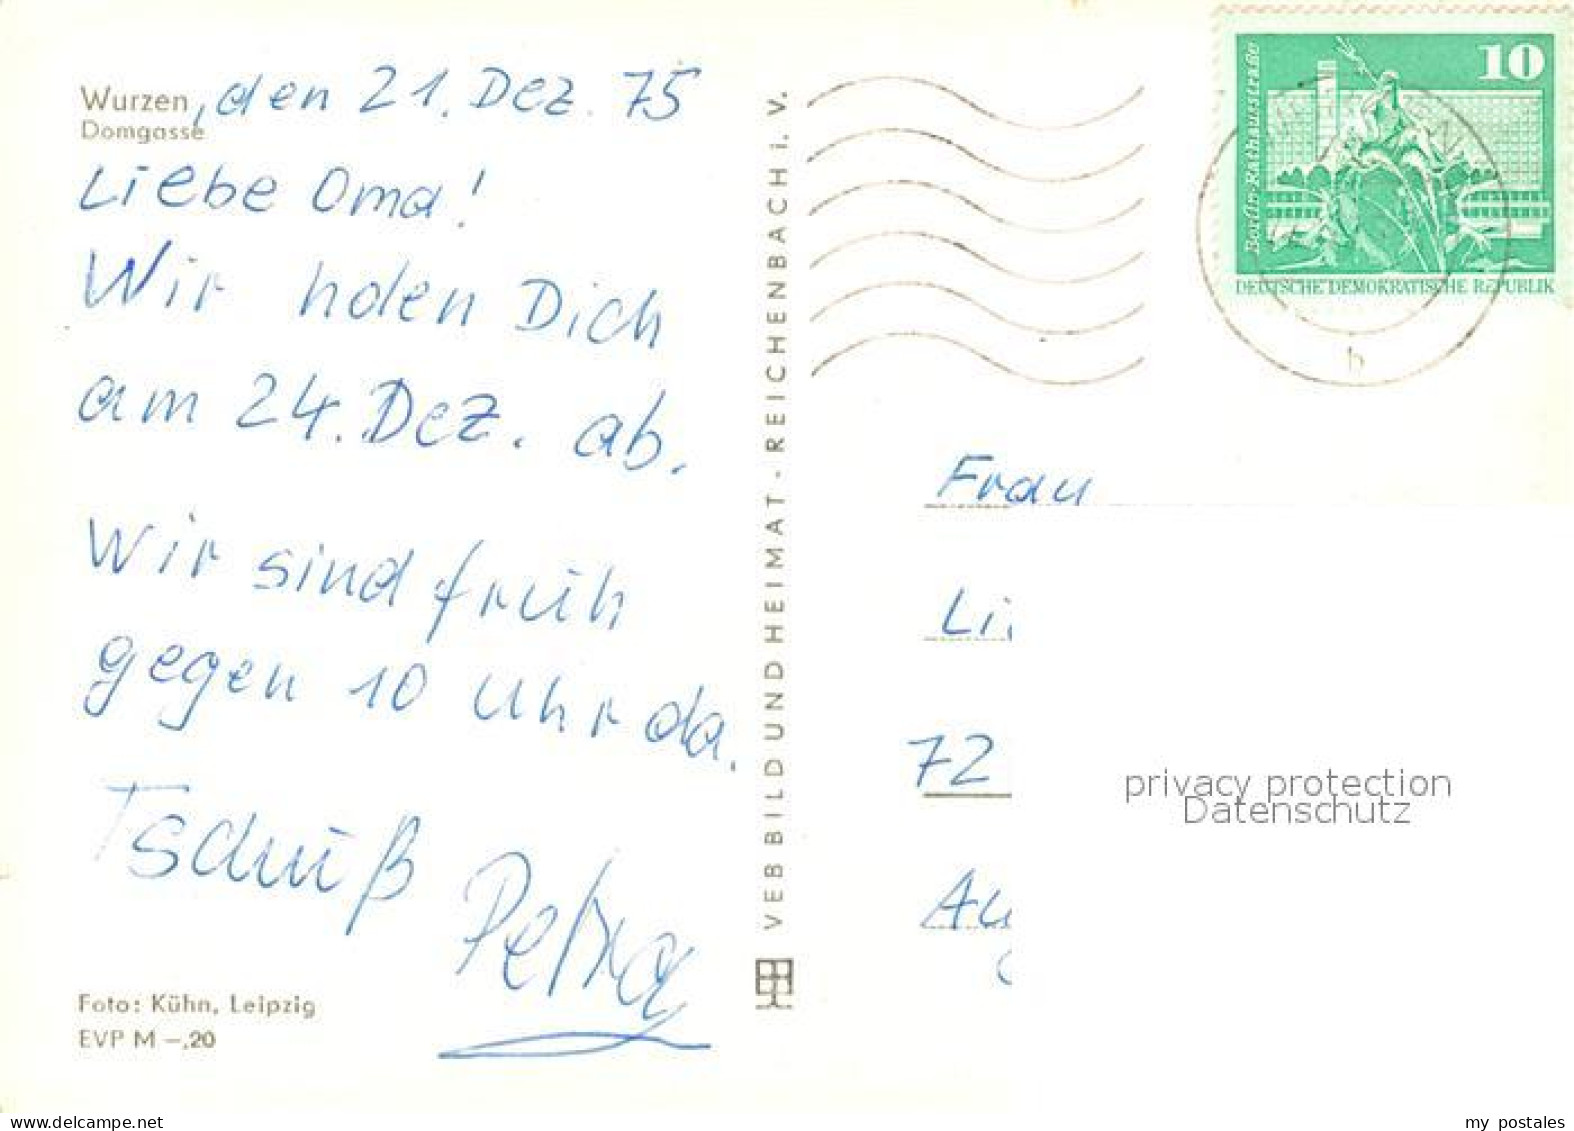 Wurzen, den 21. Dez. 75
Domgasse
Liebe Oma!
Wir holen Dich
am 24. Dez. ab.
Wir sind früh
gegen 10 Uhr da.
Tschüß
Petra
Foto: Kühn, Leipzig
EVP M –,20
VEB BILD UND HEIMAT · REICHENBACH i. V.
10
Berlin-Rathausstraße
DEUTSCHE DEMOKRATISCHE REPUBLIK
b
Frau
Li
72
privacy protection
Datenschutz
Au
www.delcampe.net
my postales